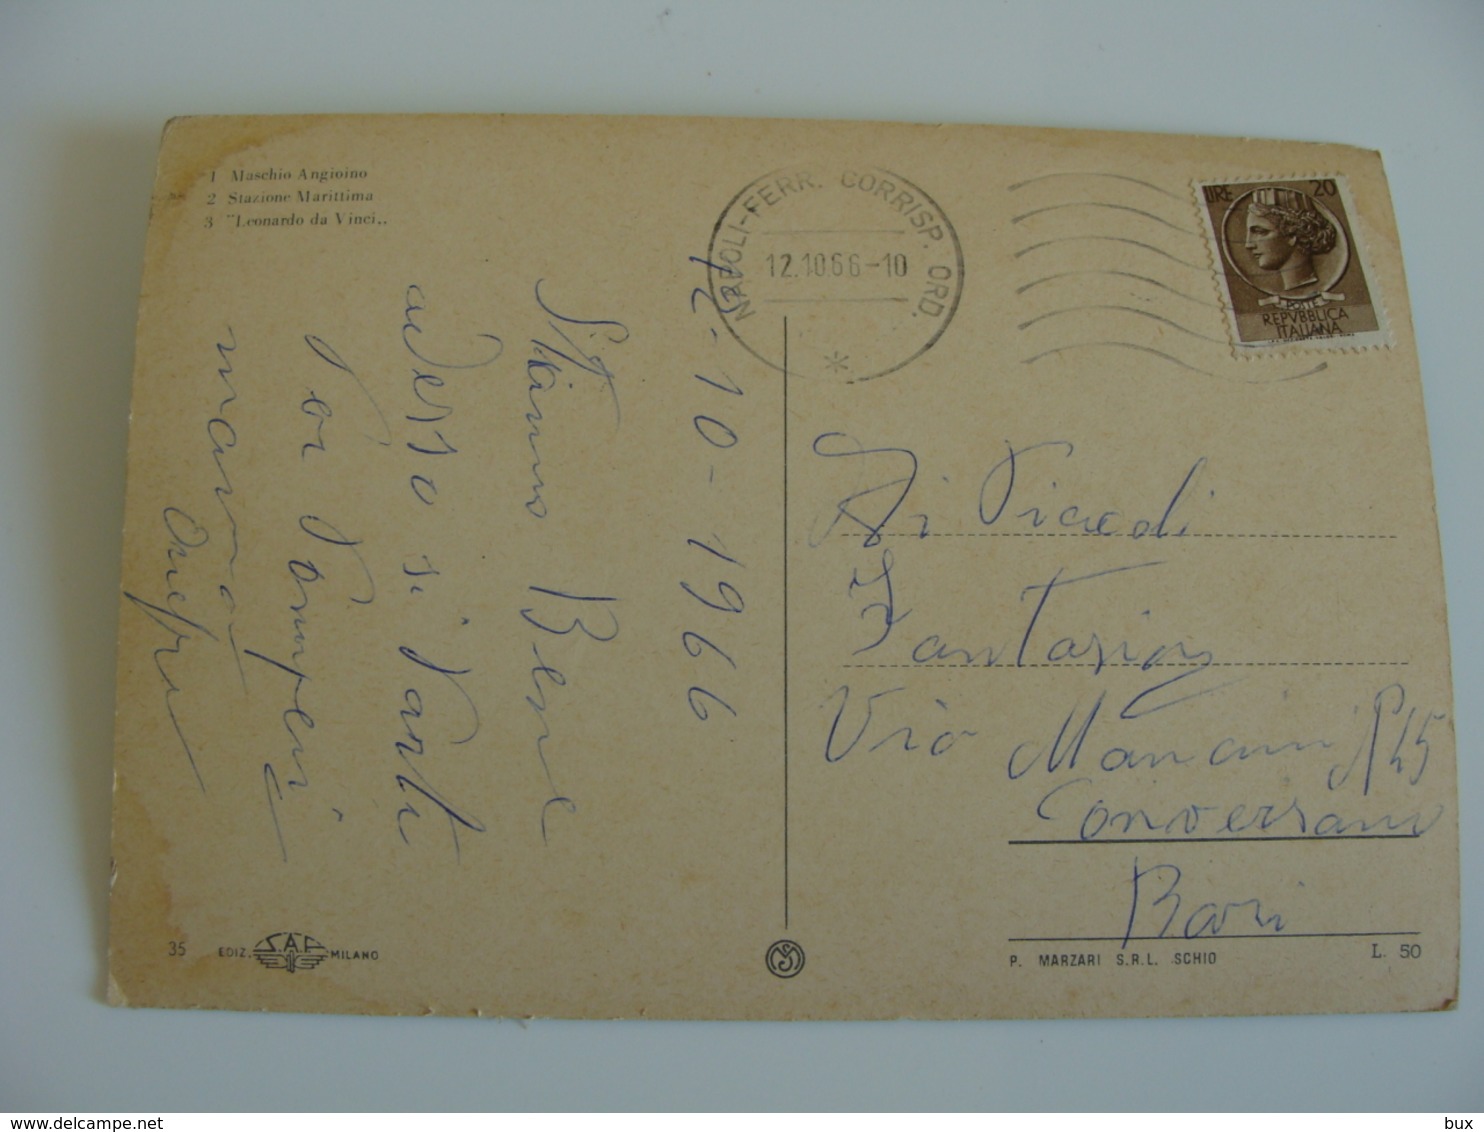 1 Maschio Angioino
2 Stazione Marittima
3 "Leonardo da Vinci„
NAPOLI-FERR. CORRISP. ORD.
12.10.66-10
LIRE 20
POSTE
REPVBBLICA
ITALIANA
12-10-1966
Stiamo Bene
adesso si Parte
Per Pompei
mamma
Ai Piccoli
Fantasia
Via Mancini N 45
Conversano
Bari
35 EDIZ. S.A.F. MILANO
P. MARZARI S.R.L. SCHIO
L. 50
bux